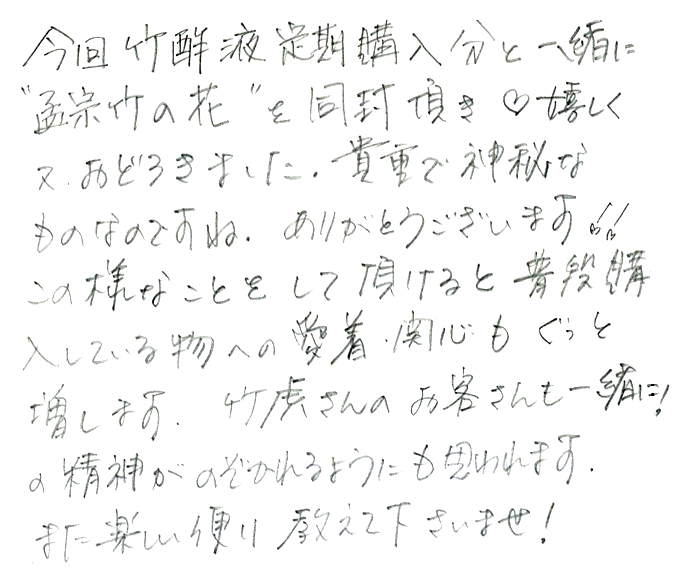 今回竹酢液定期購入分と一緒に
"孟宗竹の花"を同封頂き♡嬉しく
又、おどろきました。貴重で神秘な
ものなのですね。ありがとうございます!!
この様なことをして頂けると普段購
入している物への愛着・関心もぐっと
増します。竹虎さんのお客さんも一緒に!
の精神がのぞかれるようにも思われます。
また楽しい便り教えて下さいませ!